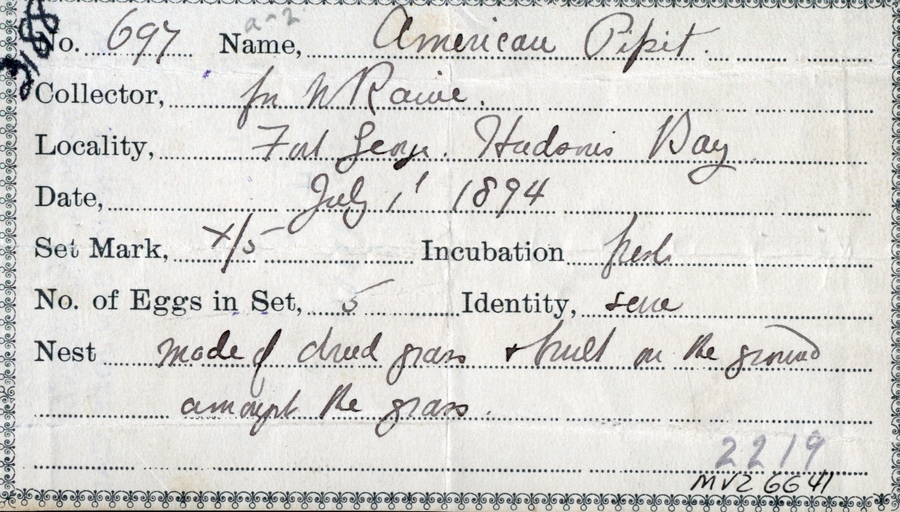 a-2
No. 697 Name, American Pipit.
Collector, for W Raine.
Locality, Fort George. Hudsons Bay
Date, July 1' 1894
Set Mark, x/5 Incubation fresh
No. of Eggs in Set, 5 Identity, sure
Nest made of dried grass & built on the ground
amongst the grass.
2219
MVZ 6641